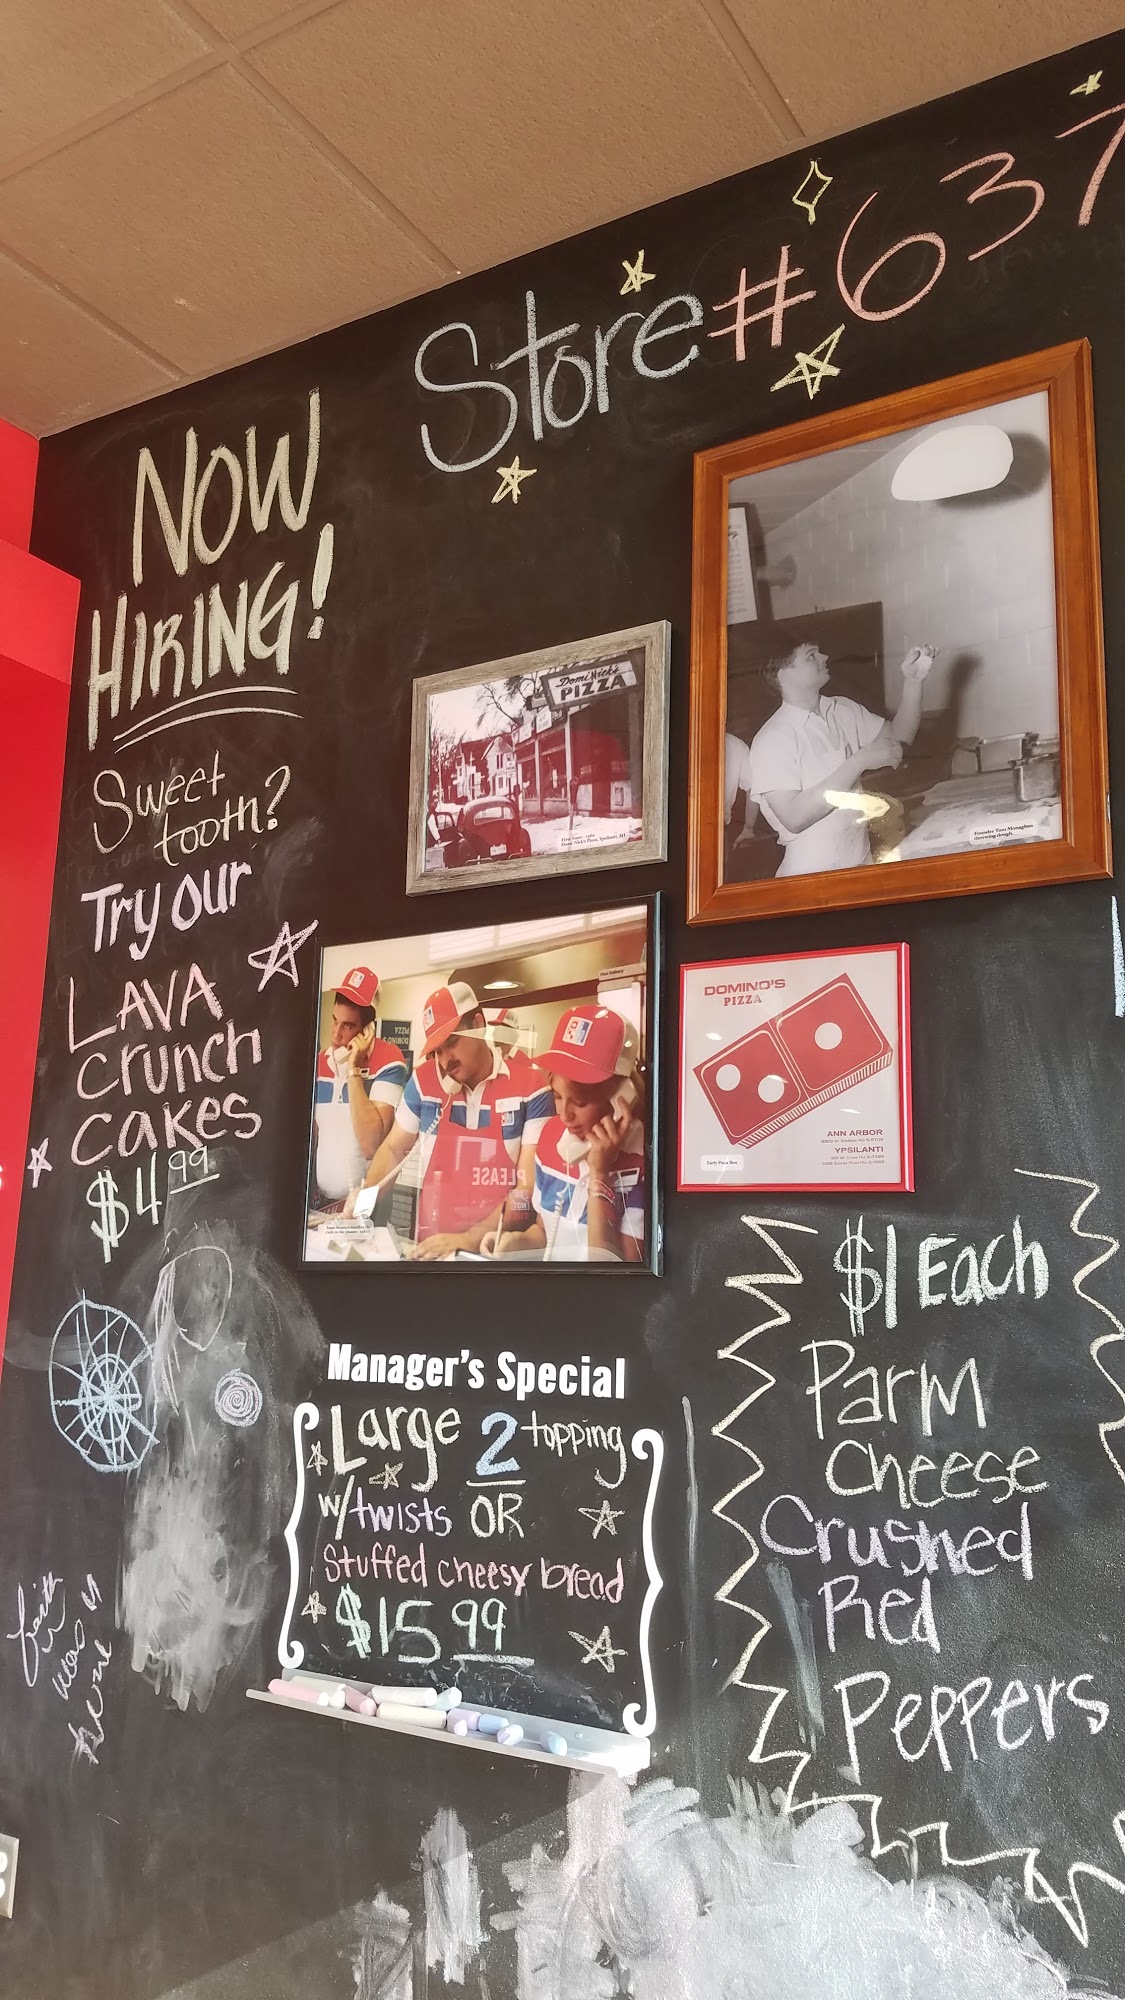 Store #637
NOW
HIRING!
Sweet
tooth?
Try our
LAVA
Crunch
cakes
$4.99
DomiNick's
PIZZA
Founder Tom Monaghan
throwing dough.
DOMINO'S
PIZZA
ANN ARBOR
YPSILANTI
Early Pizza Box
PLEASE
Manager's Special
Large 2 topping
w/twists OR
Stuffed cheesy bread
$15.99
$1 Each
Parm
Cheese
Crushed
Red
Peppers
faith
was
here